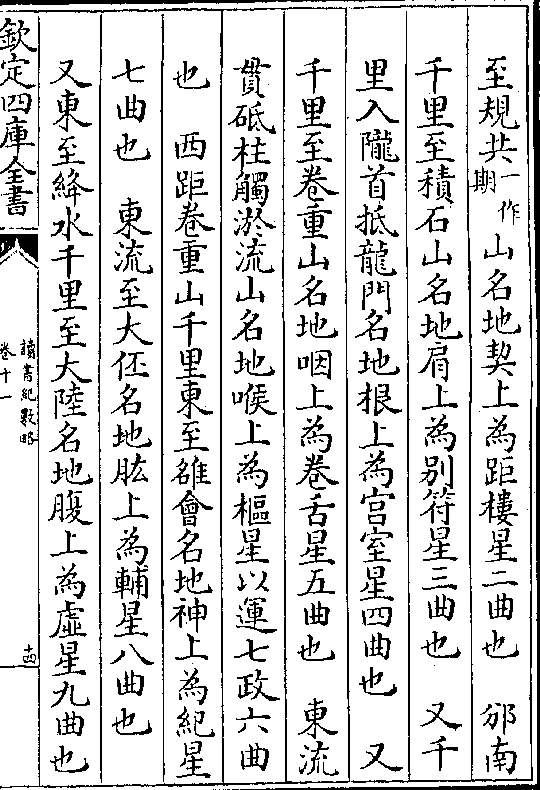 至規共一作期山名地契上為距樓星二曲也　邠南
千里至積石山名地肩上為別符星三曲也　又千
里入隴首抵龍門名地根上為宫室星四曲也　又
千里至卷重山名地咽上為卷舌星五曲也　東流
貫砥柱觸淤流山名地喉上為樞星以運七政六曲
也　西距卷重山千里東至雒會名地神上為紀星
七曲也　東流至大伾名地肱上為輔星八曲也
又東至絳水千里至大陸名地腹上為虛星九曲也
欽定四庫全書
讀書紀數略
卷十一
十四